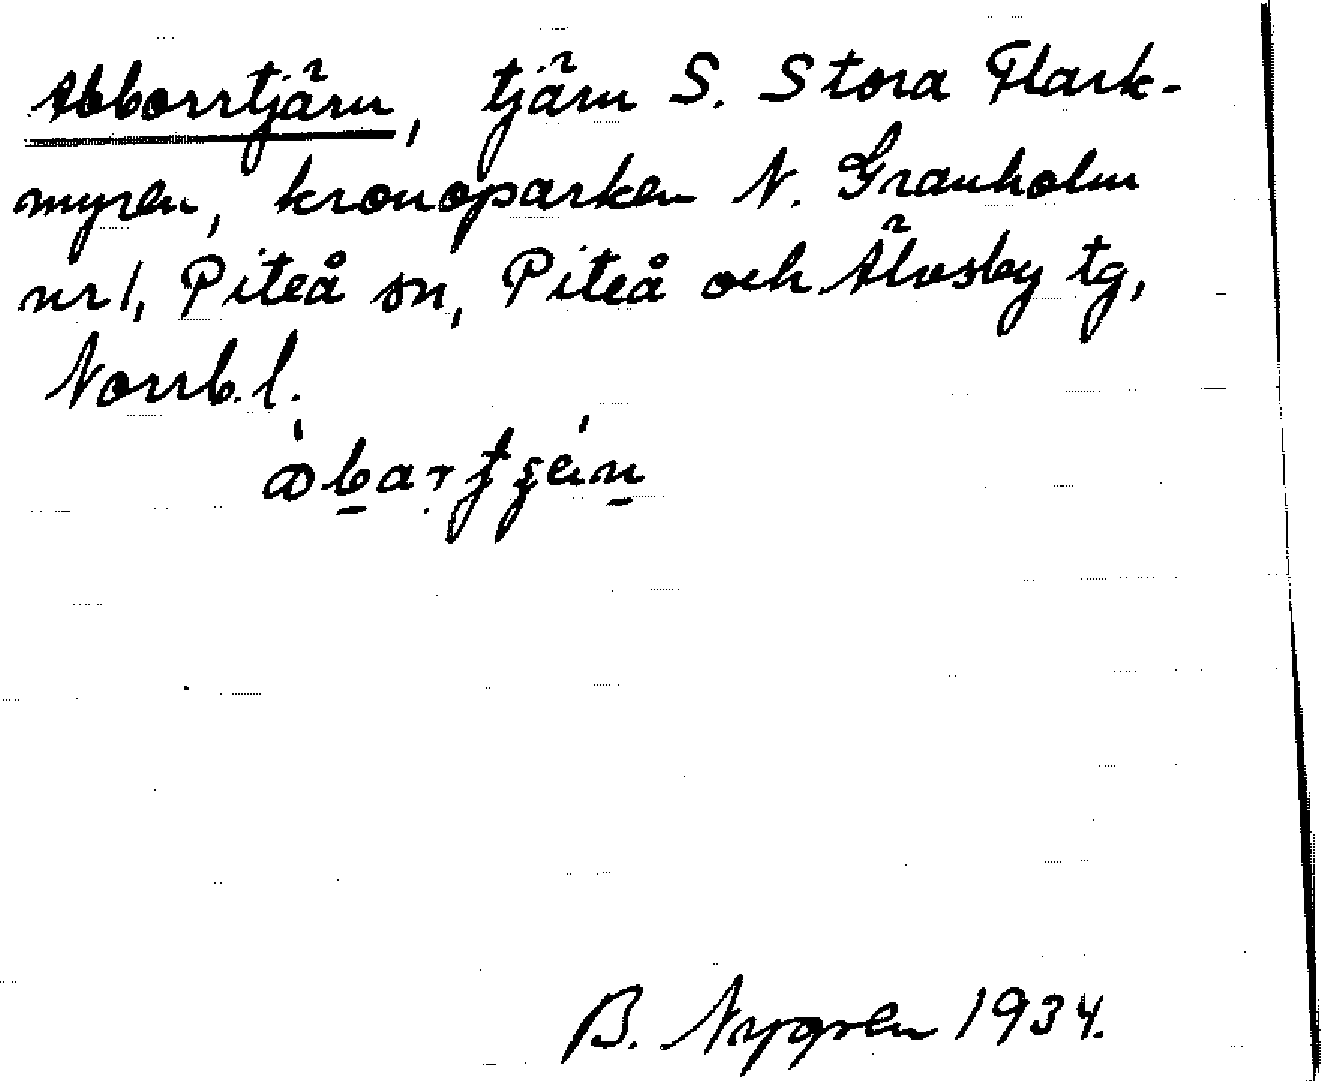 Abborrtjärn, tjärn S. Stora Flark-
myren, kronoparken N. Granholm
nr 1, Piteå sn, Piteå och Älvsby tg,
Norrb. l.
B. Nygren 1934.